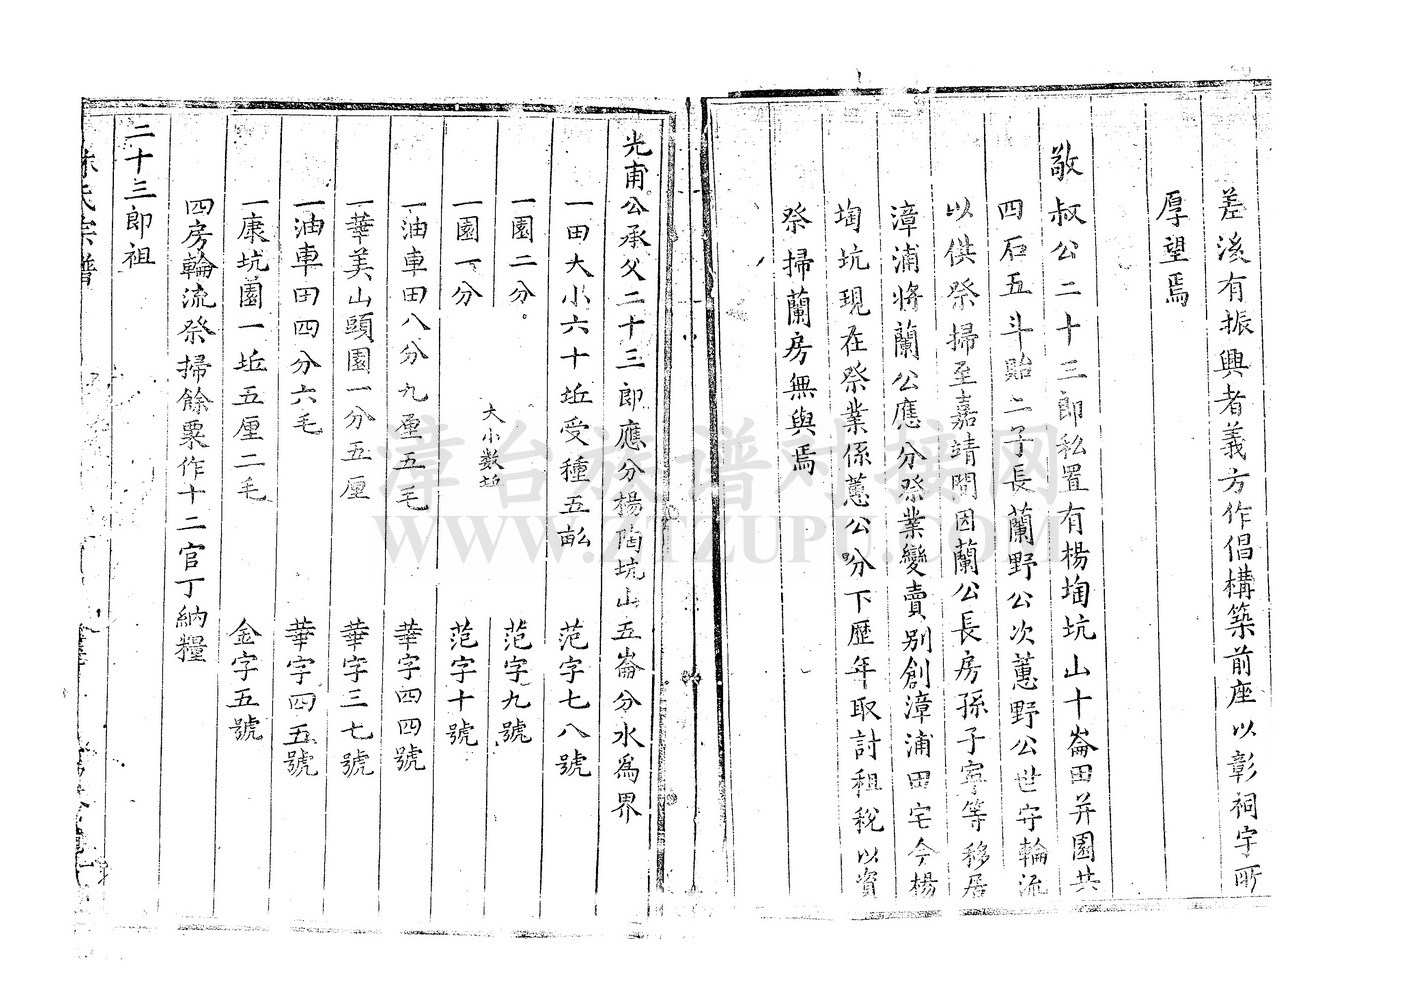 差後有振興者義方作倡構築前座以彰祠宇所
厚望焉
敬叔公二十三郎私置有楊塪坑山十崙田并園共
四石五斗貽二子長蘭野公次蕙野公世守輪流
以供祭掃至嘉靖間因蘭公長房孫子寧等移居
漳浦將蘭公應分祭業變賣別創漳浦田宅今楊
塪坑現在祭業係蕙公分下歷年取討租稅以資
祭掃蘭房無與焉
光甫公承父二十三郎應分楊陶坑山五崙分水為界
一田大小六十坵受種五畝 范字七八號
一園二分 范字九號
一園一分 大小數坵 范字十號
一油車田八分九厘五毛 華字四四號
一華美山頭園一分五厘 華字三七號
一油車田四分六毛 華字四五號
一康坑園一坵五厘二毛 金字五號
四房輪流祭掃餘粟作十二官丁納糧
二十三郎祖
氏宗譜
漳台族谱对接网
WWW.ZTZUPU.COM